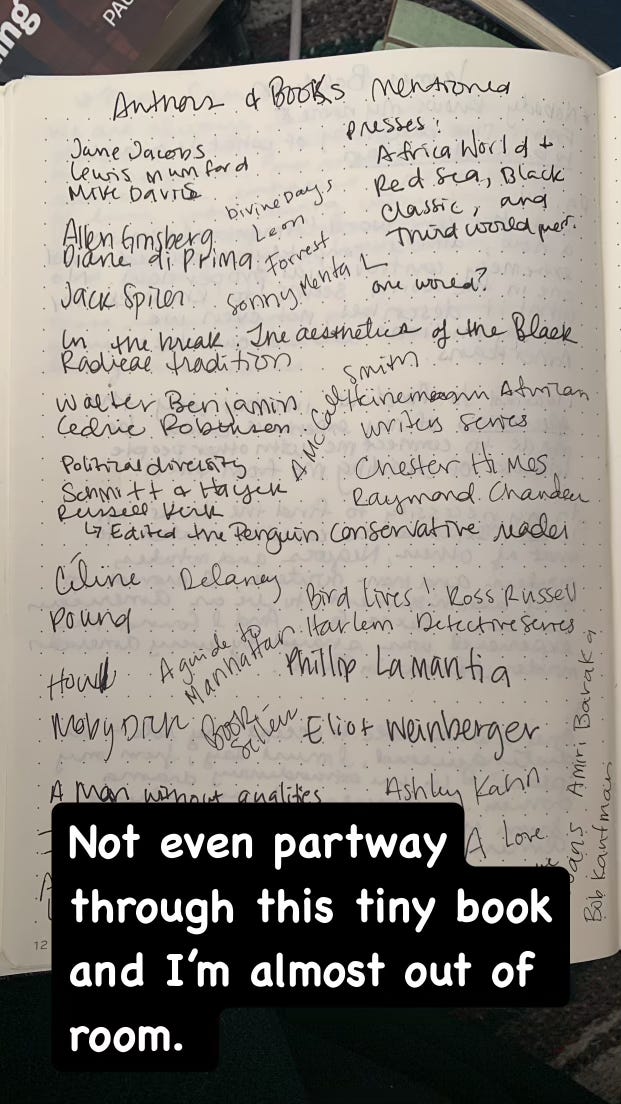 ng
PAU
Authors & Books mentioned
presses:
Jane Jacobs
Lewis Mumford
Mike Davis
Africa World &
Red Sea, Black
Classic, and
Third World
one world?
Allen Ginsberg
Diane di Prima
Divine Days
Leon
Forrest
Jack Spicer
Sonny Mehta
In the break The aesthetics of the Black
Radical tradition
Walter Benjamin
Cedric Robinson
A McCall Smith
Heinemann African
Writers Series
Political diversity
Schmitt & Hayek
Russell Kirk
↳ Edited the Penguin Conservative reader
Chester Himes
Raymond Chandler
Céline Delaney
Pound
Bird Lives! Ross Russell
Harlem Detective Series
Howl
A guide to
Manhattan
Book
Phillip Lamantia
Moby Dick
Eliot Weinberger
A Man without qualities
Ashley Kahn
A Love
Amiri Baraka
Bob Kaufman
12
Not even partway
through this tiny book
and I'm almost out of
room.